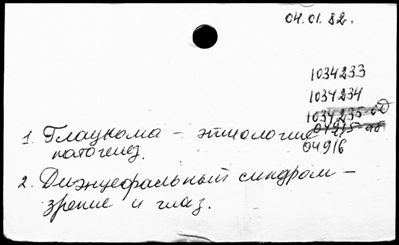 04.01.82.
1034233
1034234
1034235
1. Глаукома – этиология
04916
патогенез.
2. Диэнцефальный синдром –
зрение и глаз.